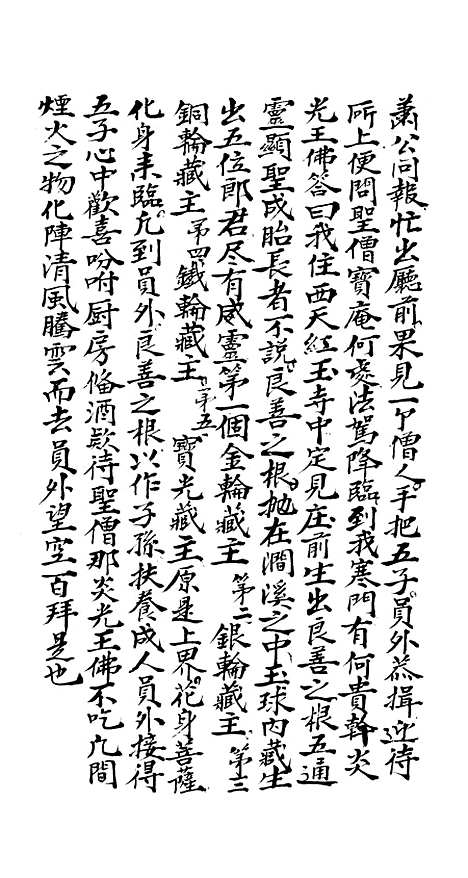 萧公同報忙出廳前果見一个僧人手把五子員外恭揖迎待
所上便問聖僧寶庵何處法駕降臨到我寒門有何貴幹炎
光王佛答曰我住西天紅玉寺中定見庄前生出良善之根五通
靈顯聖成胎長者不說良善之根拋在澗溪之中玉球內藏生
出五位郎君尽有威靈第一個金輪藏主 第二銀輪藏主 第三
銅輪藏主 第四鐵輪藏主 第五 寶光藏主原是上界花身菩薩
化身来臨凢到員外良善之根以作子孫扶養成人員外接得
五子心中歡喜吩咐厨房俻酒欵待聖僧那炎光王佛不吃凢間
煙火之物化陣清風騰雲而去員外望空百拜是也